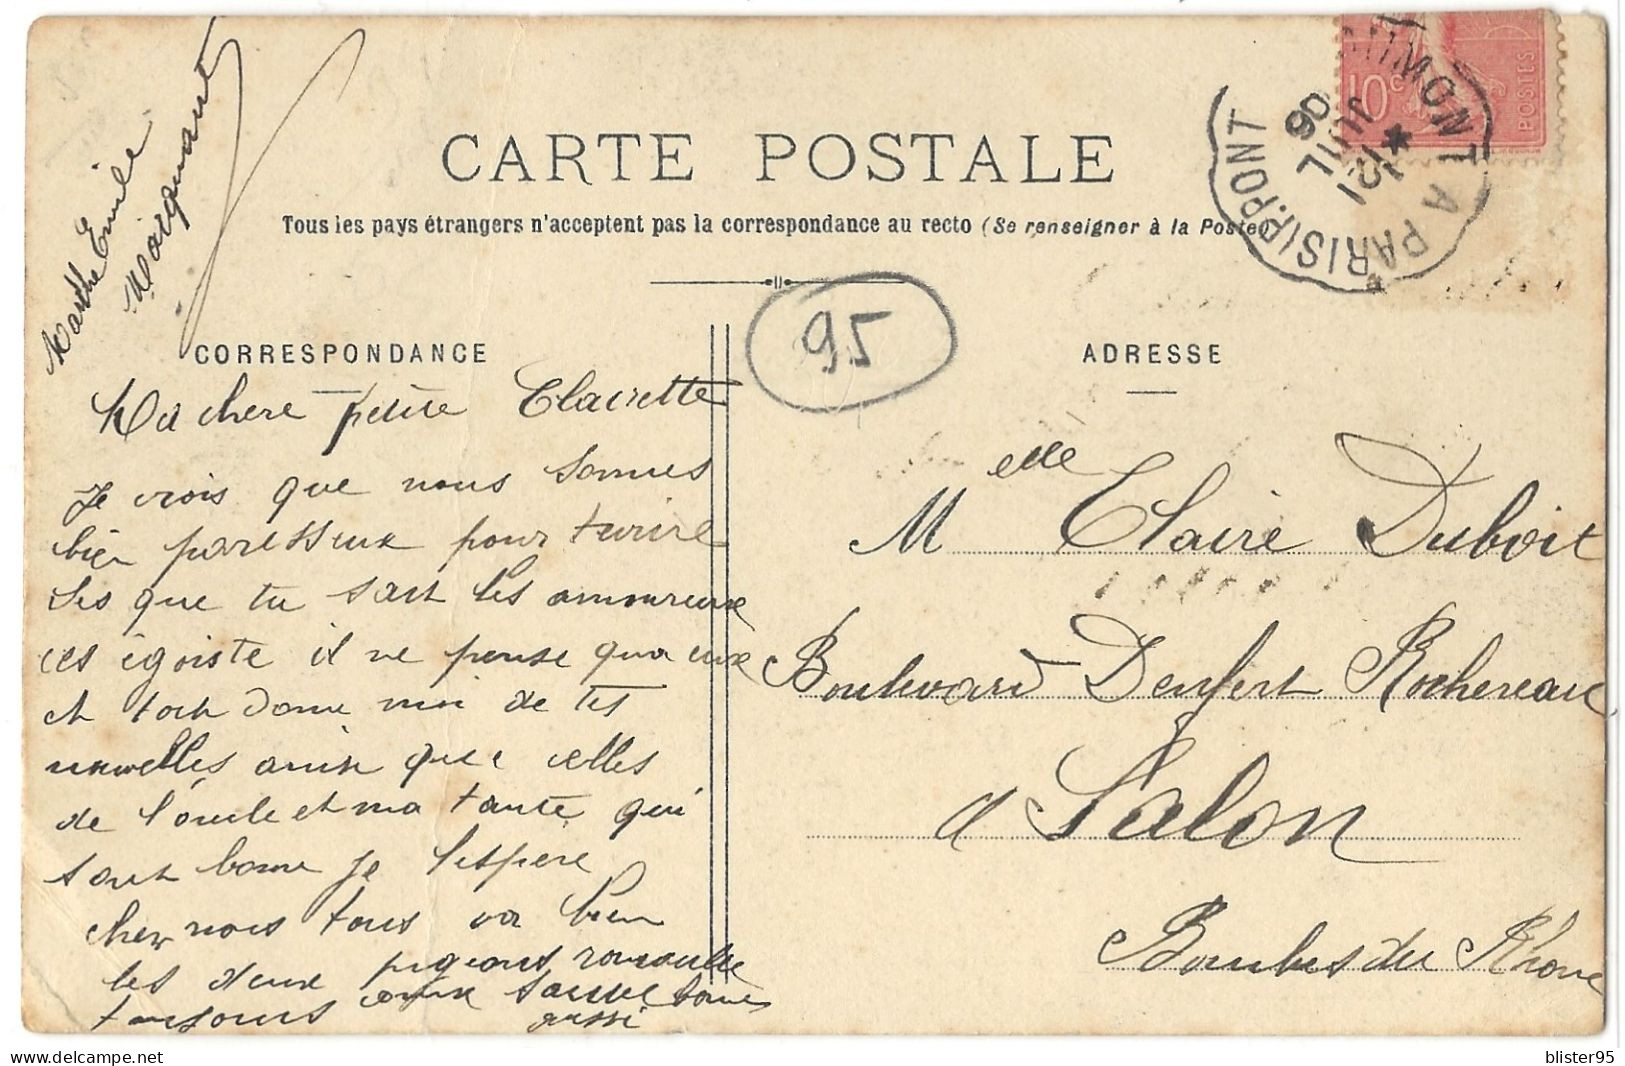 Marthe Emile
Marquant
CARTE POSTALE
Tous les pays étrangers n'acceptent pas la correspondance au recto (Se renseigner à la Poste)
10c
POSTES
MONT A PARIS (P.PONT
21
JUIL
06
95
CORRESPONDANCE
ADRESSE
Ma chere petite Clairette
Je crois que nous somes
bien paresseux pour
que tu sait les amoureux
ces égoiste il ne pense qua eux
et toit done moi de tes
nouvelles ainix que celles
de l'oncle et ma tante qui
sont bonne je l'espere
chez nous tous va bien
les deux pigeons roucoulle
toujours
aussi
Melle Claire Duboit
Boulevard Denfert Rochereau
à Salon
Bouches du Rhone
blister95